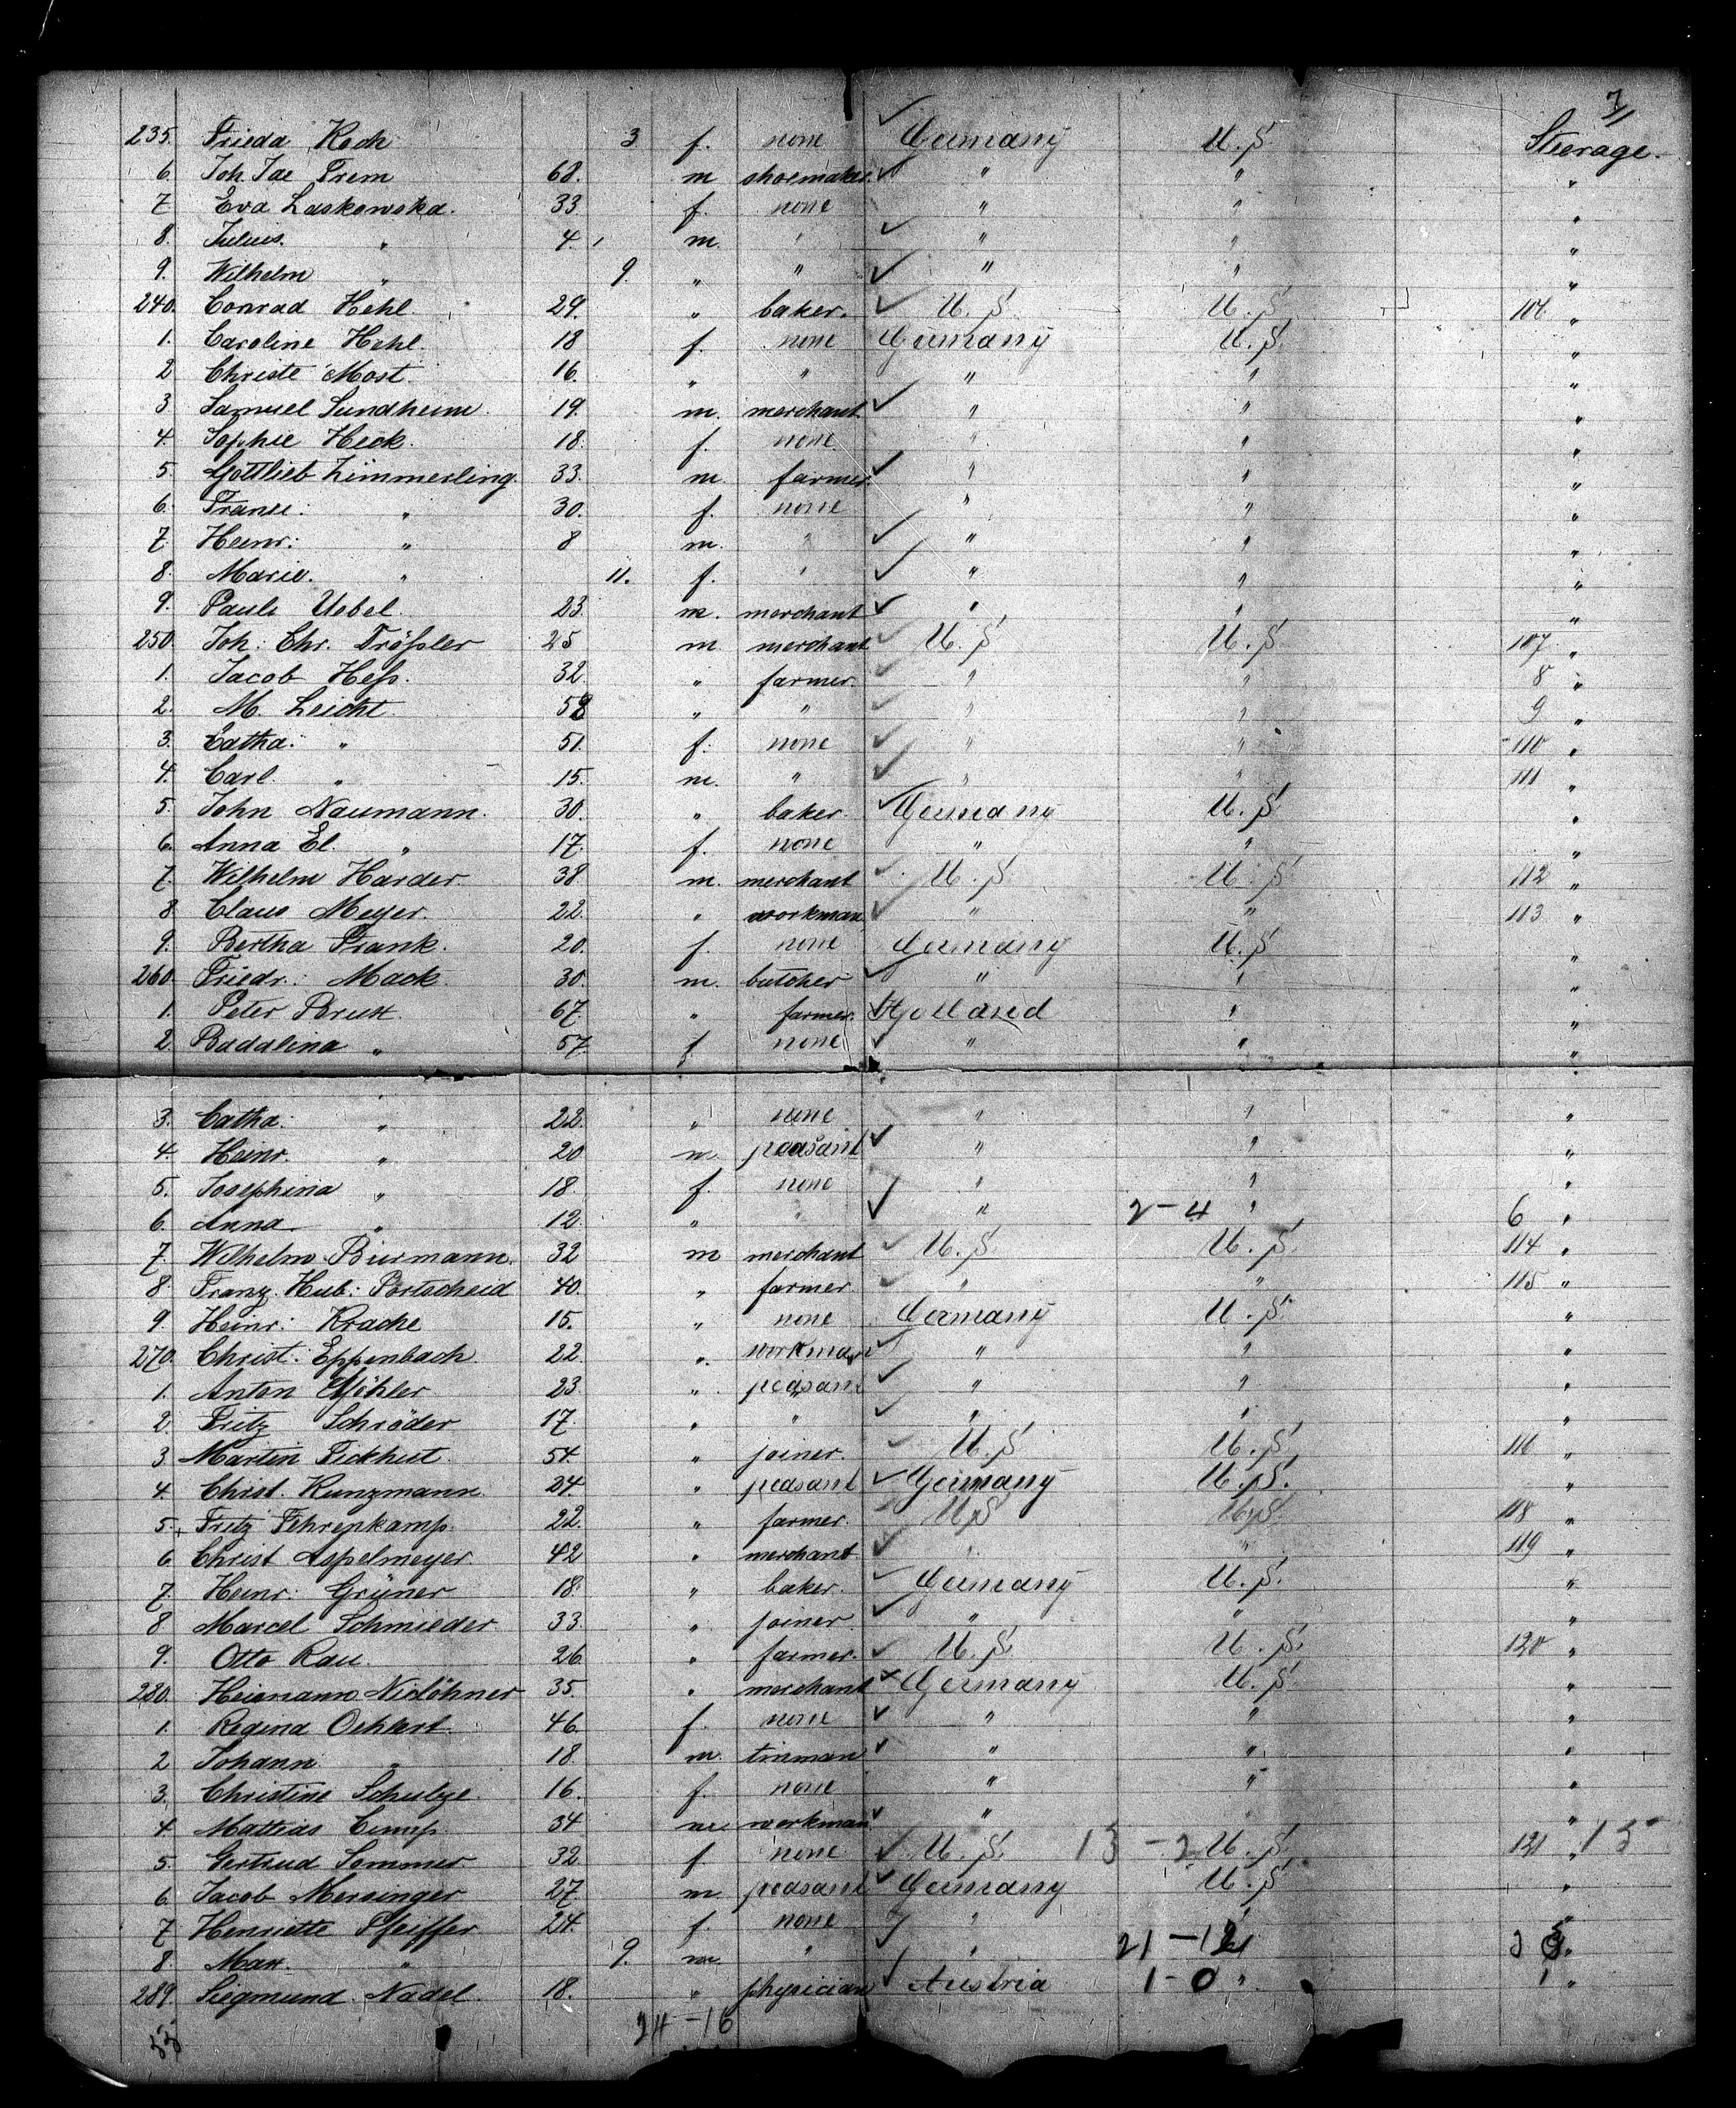 7
235. Frieda Koch 3 f. none Germany U.S Steerage.
6 Joh. Jac Prem 68. m shoemaker " " "
7 Eva Laskowska. 33 f. none " " "
8. Julius. " 4. m. " " " "
9. Wilhelm " 9. " " " " "
240. Conrad Hehl. 29. " baker. U.S. U.S. 106 "
1. Caroline Hehl. 18 f. none Germany U.S. "
2 Christe Most. 16. " " " " "
3 Samuel Sundheim. 19. m. merchant " " "
4. Sophie Heck. 18. f. none. " " "
5. Gottlieb Zimmerling. 33. m. farmer " " "
6. " 30. f. none " " "
7 Heinr: " 8 m. " " " "
8. Marie. " 11. f. " " " "
9. Paul Uebel. 23 m. merchant " " "
250. Joh: Chr. Tröſsler 25 m merchant U.S U.S 107 "
1. Jacob Heſs. 32. " farmer. " " 8 "
2. M. Leicht. 58 " " " " 9 "
3. Catha: " 51. f. none " " 110 "
4. Carl " 15. m. " " " 111 "
5. John Naumann. 30. " baker. Germany U.S "
6. Anna El. " 17. f. none " " "
7. Wilhelm Harder. 38. m. merchant U.S. U.S 112 "
8 Claus Meyer. 22. " workman " " 113 "
9. Bertha Frank. 20. f. none Germany U.S "
260. Friedr: Mack 30. m. butcher " " "
1. Peter 67. " farmer. Holland " "
2. Badalina " 57 f none " " "
3. Catha: " 22. " none " " "
4. Heinr. " 20 m peasant " " "
5. Josephina " 18. f. none " " "
6. Anna " 12. " " " 2-4 " 6 "
7. Wilhelm Biermann. 32 m merchant U.S. U.S. 114 "
8 Franz. Hub: Portscheid 40. " farmer. " " 115 "
9. Heinr: Krache 15. " none Germany U.S. "
270. Christ: Eppenbach. 22. " workman " " "
1. Anton Göhler. 23. " peasant " " "
2 Fritz Schröder 17. " " " " "
3 Martin 54. " joiner. U.S U.S. 116 "
4. Christ. Kunzmann. 24. " peasant Germany U.S. "
5. Fritz Fehrenkamp. 22. " farmer. U.S U.S. 118 "
6 Christ Aspelmeyer 42 " merchant " " 119 "
7. Heinr: Grüner 18. " baker. Germany U.S. "
8 Marcel Schmieder 33. " joiner " " "
9. Otto Rau. 26. " farmer. U.S. U.S. 120 "
280. Heiemann 35. " merchant Germany U.S. "
1. Regina 46. f. none " " "
2 Johann " 18. m. tinman " " "
3. Christine Schulze. 16. f. none " " "
4. Mattias 34 m workman " " "
5. Gertrud Sommer 32. f. none U.S. 13-2 U.S. 121 " 15
6. Jacob Mersinger 27. m. peasant Germany U.S "
7 Henriette Pfeiffer. 24. f none " " "
8. Max. " 9. m. " " 21-12 " 3 "
289. Siegmund Nadel. 18. " physician Austria 1-0 " 1 "
55 24-16